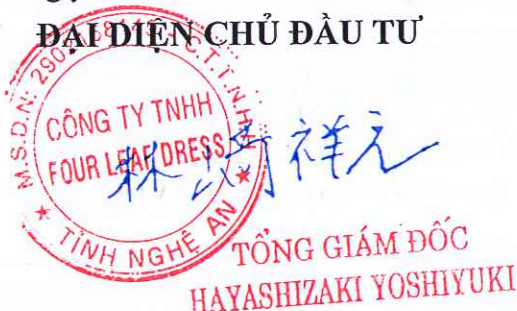 ĐẠI DIỆN CHỦ ĐẦU TƯ
CÔNG TY TNHH
FOUR LEAF DRESS
TỈNH NGHỆ AN
林﨑祥元
TỔNG GIÁM ĐỐC
HAYASHIZAKI YOSHIYUKI